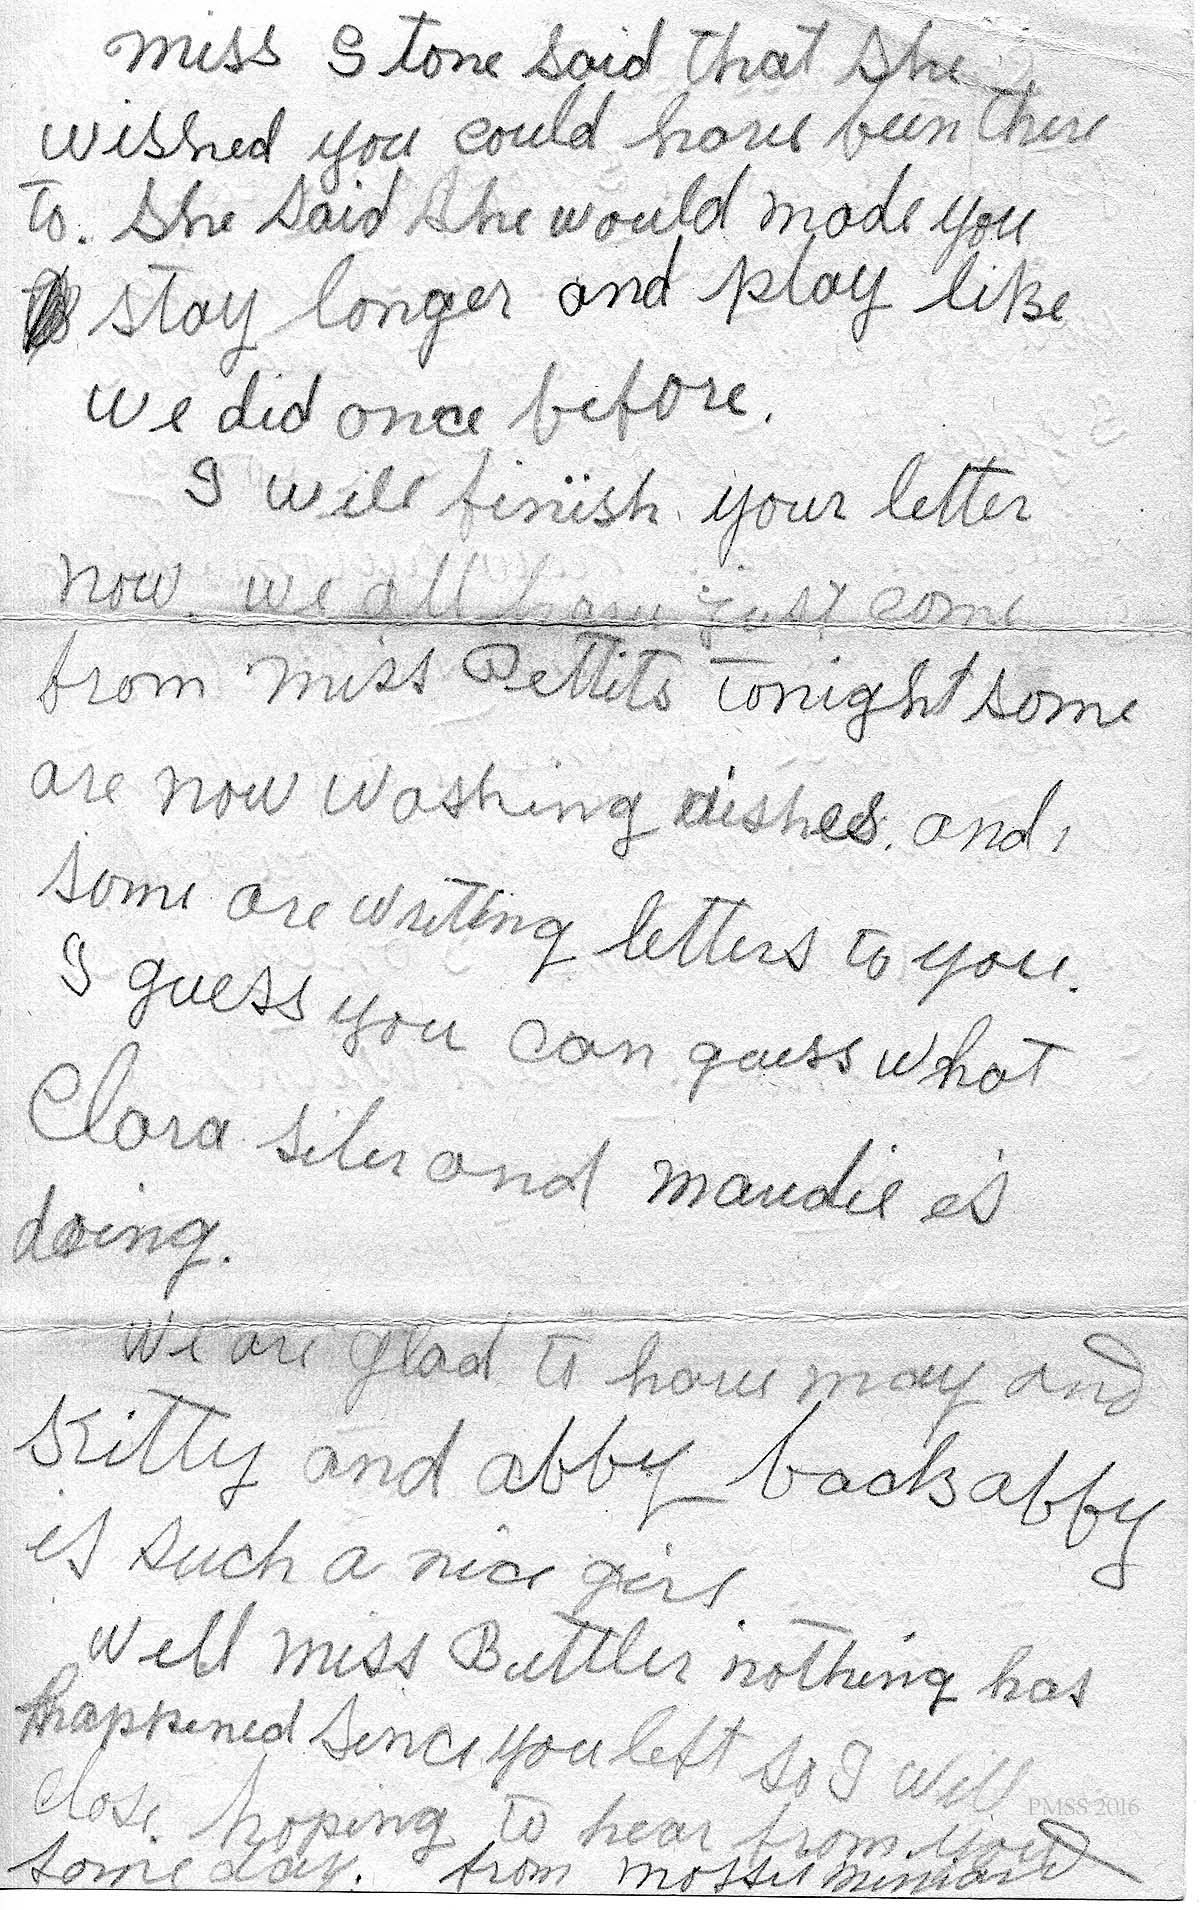 miss Stone said that she
wished you could have been there
to. she said she would made you
stay longer and play like
we did once before.
I will finish your letter
now. we all have just come
from miss Pettits tonight some
are now washing dishes. and
some are writing letters to you.
I guess you can guess what
Clara siler and maudie is
doing.
We are glad to have may and
Kitty and abby back abby
is such a nice girl
Well miss Buttler nothing has
happened since you left so I will
close hoping to hear from you
some day. from mossie miniard
PMSS 2016